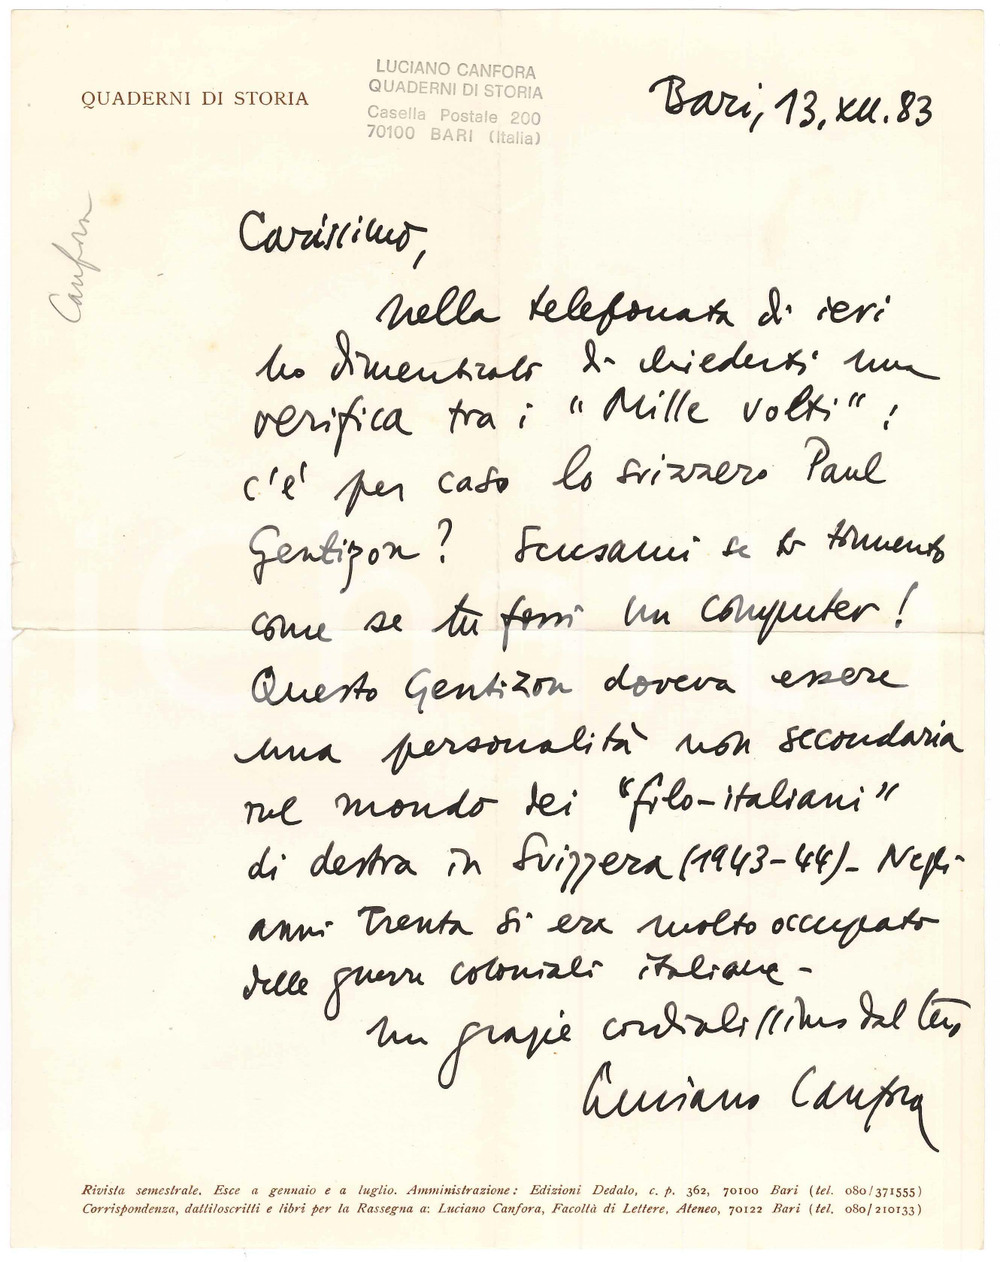 QUADERNI DI STORIA
LUCIANO CANFORA
QUADERNI DI STORIA
Casella Postale 200
70100 BARI (Italia)
Bari, 13.XII.83
Canfora
Carissimo,
nella telefonata di ieri
ho dimenticato di chiederti una
verifica tra i "Mille volti" :
c'e' per caso lo svizzero Paul
Gentizon? Scusami se ti tormento
come se tu fossi un computer!
Questo Gentizon doveva essere
una personalità non secondaria
nel mondo dei "filo-italiani"
di destra in Svizzera (1943-44)- Negli
anni Trenta si era molto occupato
delle guerre coloniali italiane -
un grazie cordialissimo dal tuo
Luciano Canfora
Rivista semestrale. Esce a gennaio e a luglio. Amministrazione: Edizioni Dedalo, c. p. 362, 70100 Bari (tel. 080/371555)
Corrispondenza, dattiloscritti e libri per la Rassegna a: Luciano Canfora, Facoltà di Lettere, Ateneo, 70122 Bari (tel. 080/210133)